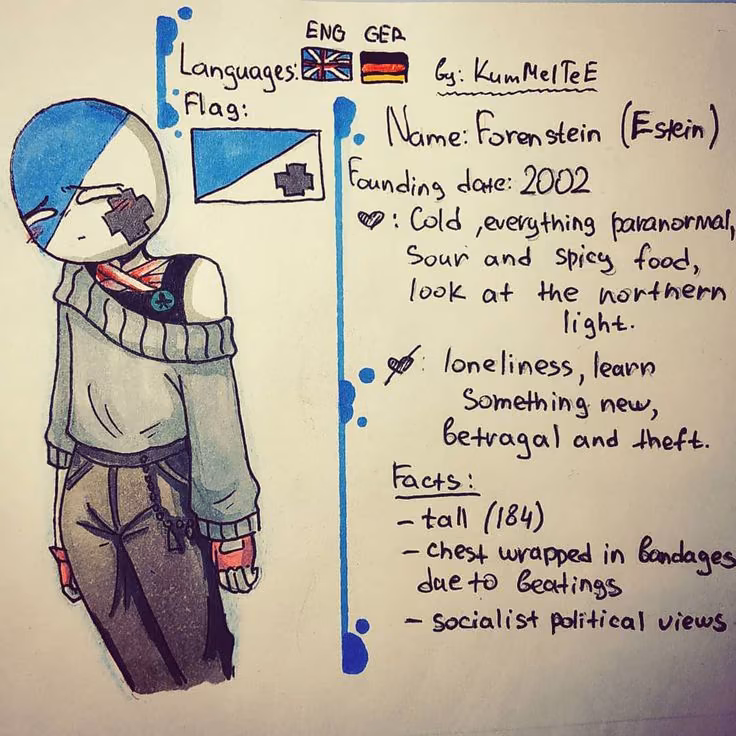 ENG GER
Languages:
by: KumMelTeE
Flag:
Name: Forenstein (Estein)
Founding date: 2002
♡: Cold, everything paranormal,
Sour and spicy food,
look at the northern
light.
: loneliness, learn
Something new,
betragal and theft.
Facts:
- tall (184)
- chest wrapped in bandages
due to beatings
- socialist political views